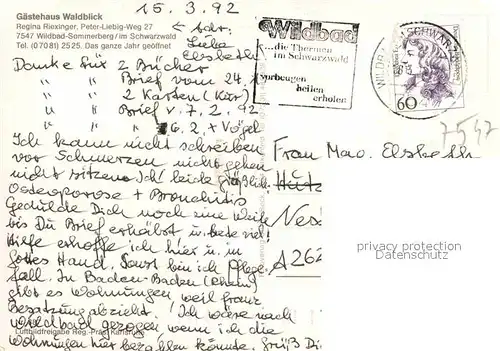 15.3.92
Gästehaus Waldblick
Regina Riexinger, Peter-Liebig-Weg 27
7547 Wildbad-Sommerberg/im Schwarzwald
Tel. (07081) 2525. Das ganze Jahr geöffnet
← Adr:
Liebe
Elsbeth
Danke für 2 Bücher
" " Brief vom 24.
" " 2 Karten (Kur)
" " Brief v. 7.2.92
" " 6.2. + Vögel
Ich kann nicht schreiben
vor Schmerzen nicht gehen
nicht sitzen. Ich leide gräßlich.
Osteoporose + Bronchitis
Gedulde Dich noch eine Weile
bis Du Brief erhälst u. bete viel!
Hilfe erhoffe ich hier u. in
Gottes Hand. Sonst bin ich Pflege-
fall. In Baden-Baden (Rhein)
gibt es Wohnungen weil franz
Besatzung abzieht! Ich wäre nach
Wildbad gezogen wenn ich die
Wohnungen hier bezahlen könnte. Grüß Di
Luftbildfreigabe Reg.-Präs. Karlsruhe
Wildbad
...die Thermen
im Schwarzwald
vorbeugen
heilen
erholen
WILDBAD SCHWARZW
60
7547
Frau Mag. Elsbeth
Nes
A262
privacy protection
Datenschutz